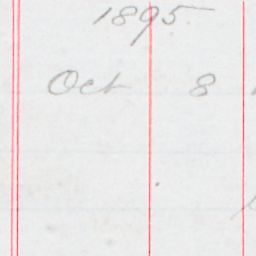 1895.
Oct 8